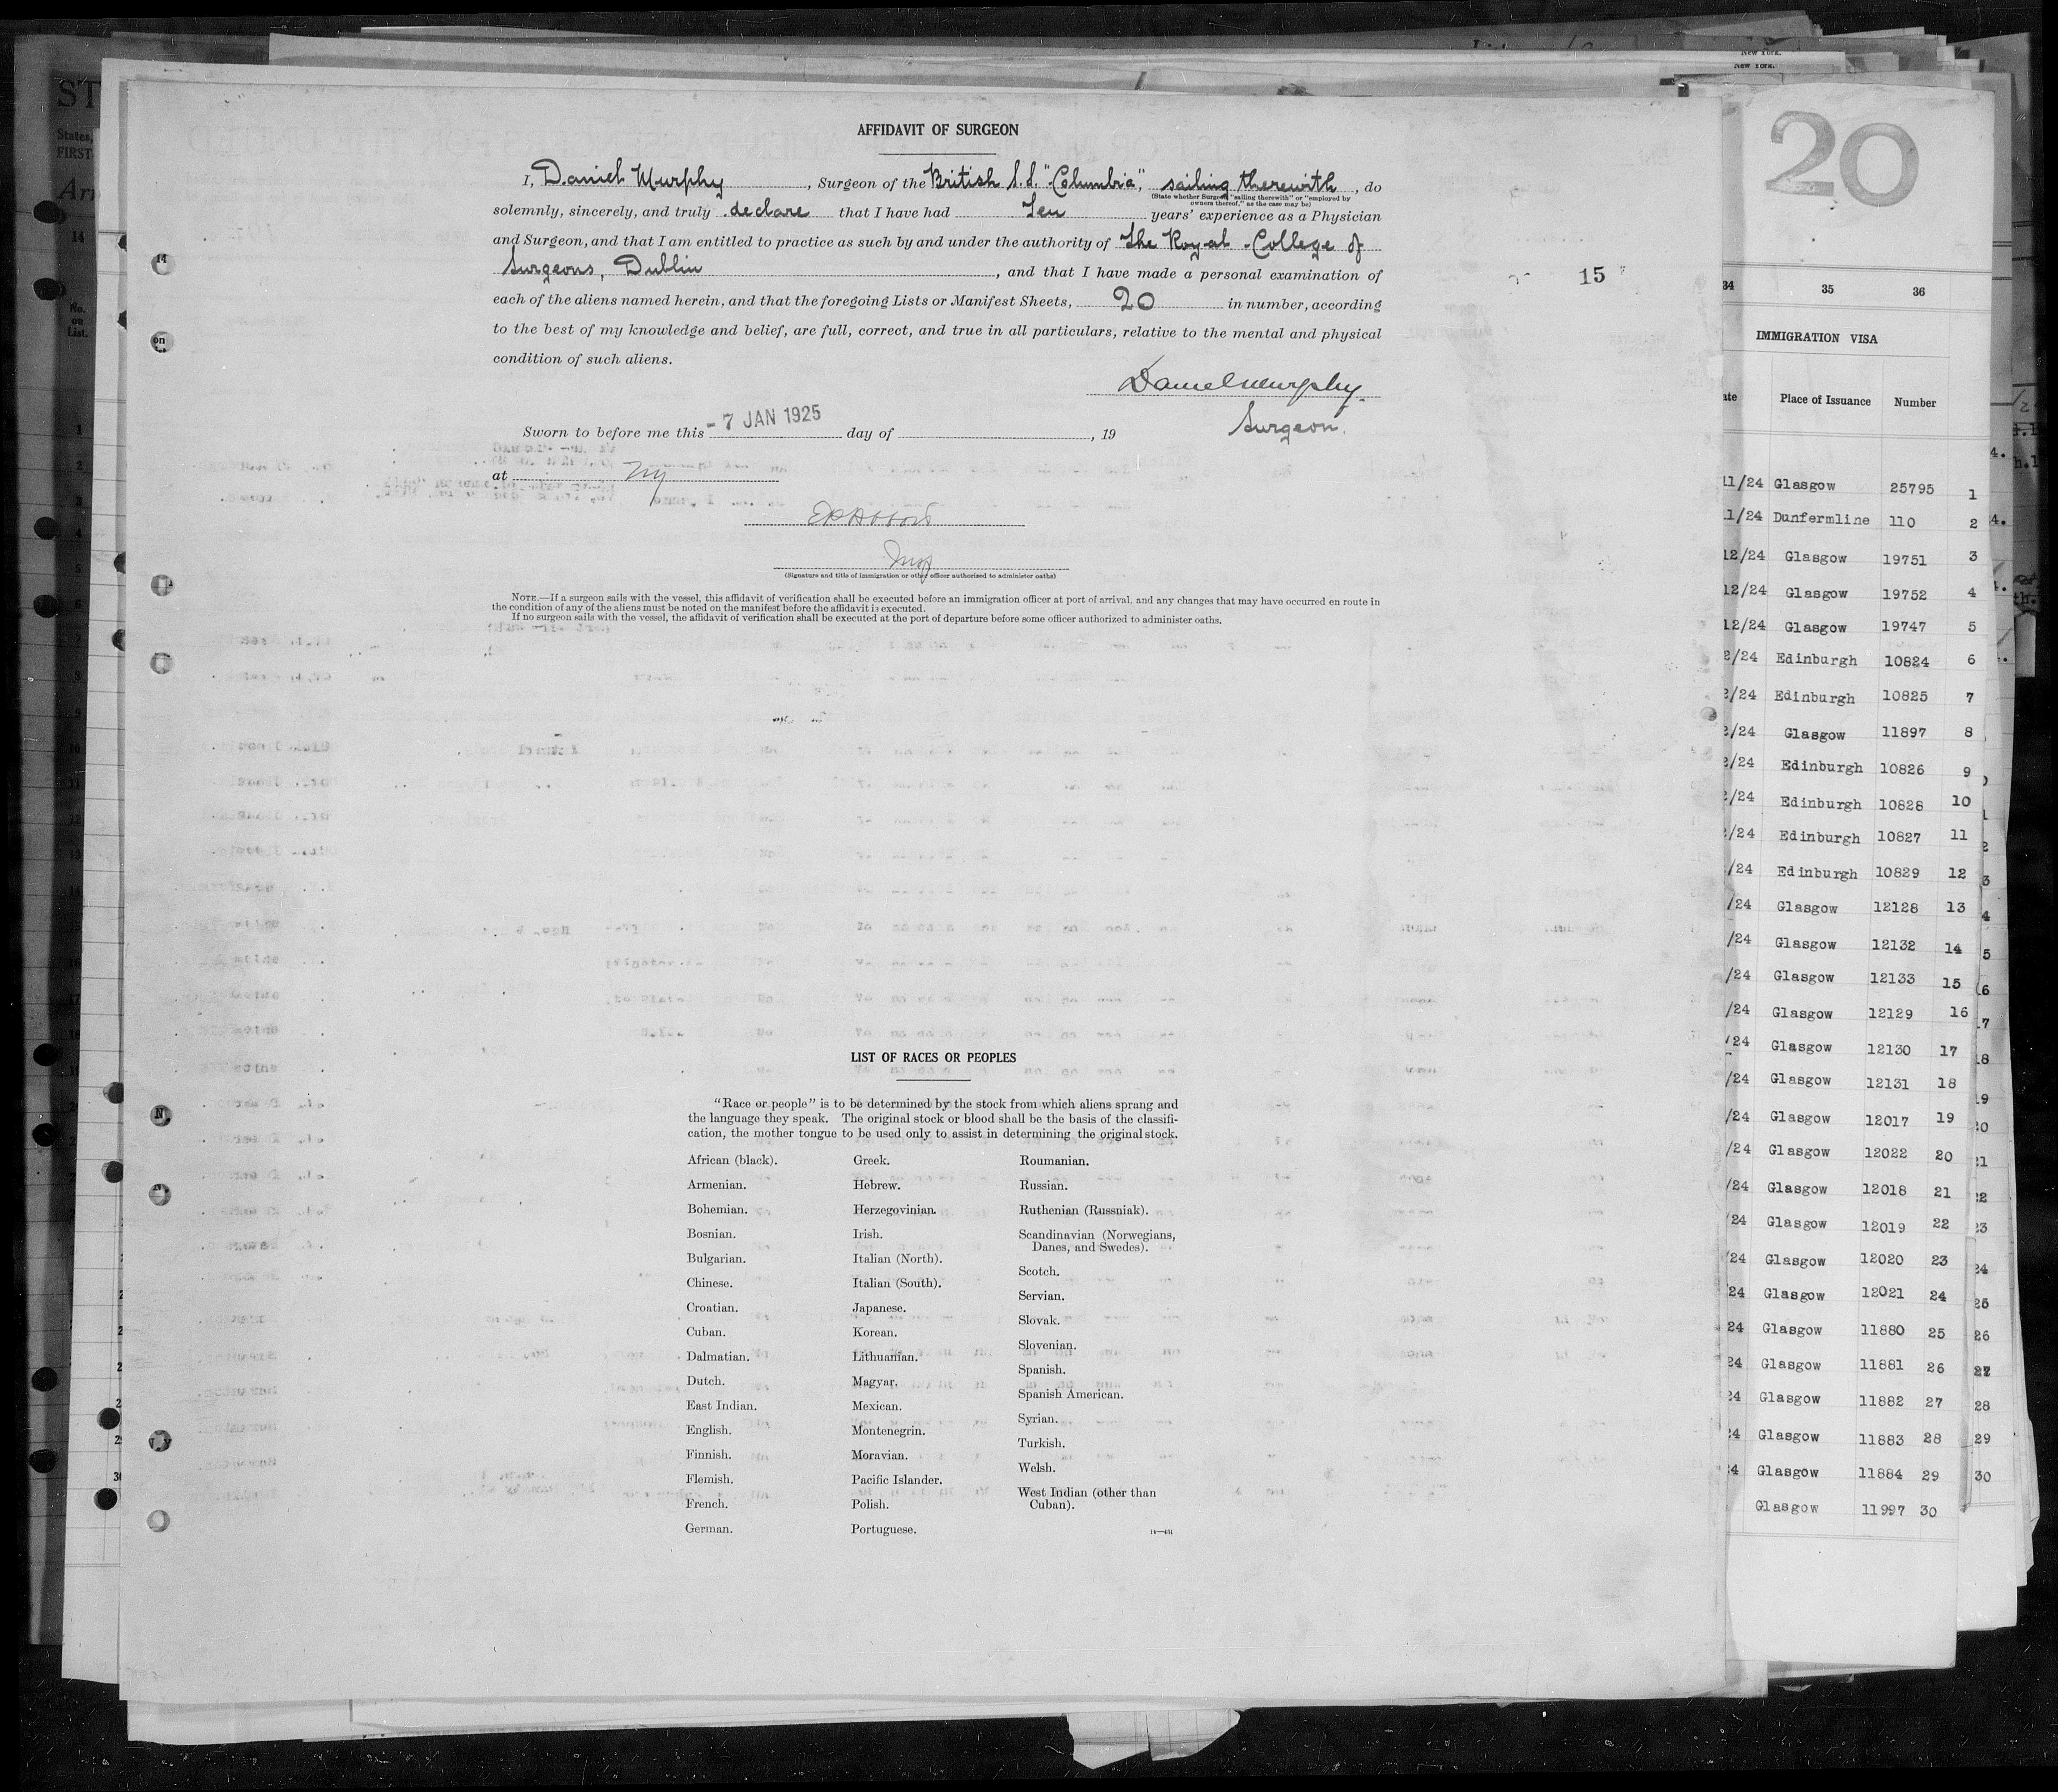 AFFIDAVIT OF SURGEON
I, Daniel Murphy, Surgeon of the British S.S. "Columbia", sailing therewith, do
(State whether Surgeon "sailing therewith" or "employed by
owners thereof," as the case may be)
solemnly, sincerely, and truly declare that I have had Ten years' experience as a Physician
and Surgeon, and that I am entitled to practice as such by and under the authority of The Royal College of
Surgeons, Dublin, and that I have made a personal examination of
each of the aliens named herein, and that the foregoing Lists or Manifest Sheets, 20 in number, according
to the best of my knowledge and belief, are full, correct, and true in all particulars, relative to the mental and physical
condition of such aliens.
Daniel Murphy
Surgeon.
Sworn to before me this - 7 JAN 1925 day of , 19
at NY
Insp
(Signature and title of immigration or other officer authorized to administer oaths)
NOTE.—If a surgeon sails with the vessel, this affidavit of verification shall be executed before an immigration officer at port of arrival, and any changes that may have occurred en route in
the condition of any of the aliens must be noted on the manifest before the affidavit is executed.
If no surgeon sails with the vessel, the affidavit of verification shall be executed at the port of departure before some officer authorized to administer oaths.
LIST OF RACES OR PEOPLES
"Race or people" is to be determined by the stock from which aliens sprang and
the language they speak. The original stock or blood shall be the basis of the classifi-
cation, the mother tongue to be used only to assist in determining the original stock.
African (black).
Armenian.
Bohemian.
Bosnian.
Bulgarian.
Chinese.
Croatian.
Cuban.
Dalmatian.
Dutch.
East Indian.
English.
Finnish.
Flemish.
French.
German.
Greek.
Hebrew.
Herzegovinian.
Irish.
Italian (North).
Italian (South).
Japanese.
Korean.
Lithuanian.
Magyar.
Mexican.
Montenegrin.
Moravian.
Pacific Islander.
Polish.
Portuguese.
Roumanian.
Russian.
Ruthenian (Russniak).
Scandinavian (Norwegians,
Danes, and Swedes).
Scotch.
Servian.
Slovak.
Slovenian.
Spanish.
Spanish American.
Syrian.
Turkish.
Welsh.
West Indian (other than
Cuban).
15
20
34 35 36
IMMIGRATION VISA
Place of Issuance Number
11/24 Glasgow 25795 1
11/24 Dunfermline 110 2
12/24 Glasgow 19751 3
12/24 Glasgow 19752 4
12/24 Glasgow 19747 5
2/24 Edinburgh 10824 6
2/24 Edinburgh 10825 7
2/24 Glasgow 11897 8
2/24 Edinburgh 10826 9
2/24 Edinburgh 10828 10
/24 Edinburgh 10827 11
/24 Edinburgh 10829 12
/24 Glasgow 12128 13
/24 Glasgow 12132 14
/24 Glasgow 12133 15
/24 Glasgow 12129 16
/24 Glasgow 12130 17
/24 Glasgow 12131 18
/24 Glasgow 12017 19
/24 Glasgow 12022 20
/24 Glasgow 12018 21
/24 Glasgow 12019 22
/24 Glasgow 12020 23
24 Glasgow 12021 24
24 Glasgow 11880 25
24 Glasgow 11881 26
24 Glasgow 11882 27
24 Glasgow 11883 28
4 Glasgow 11884 29
Glasgow 11997 30